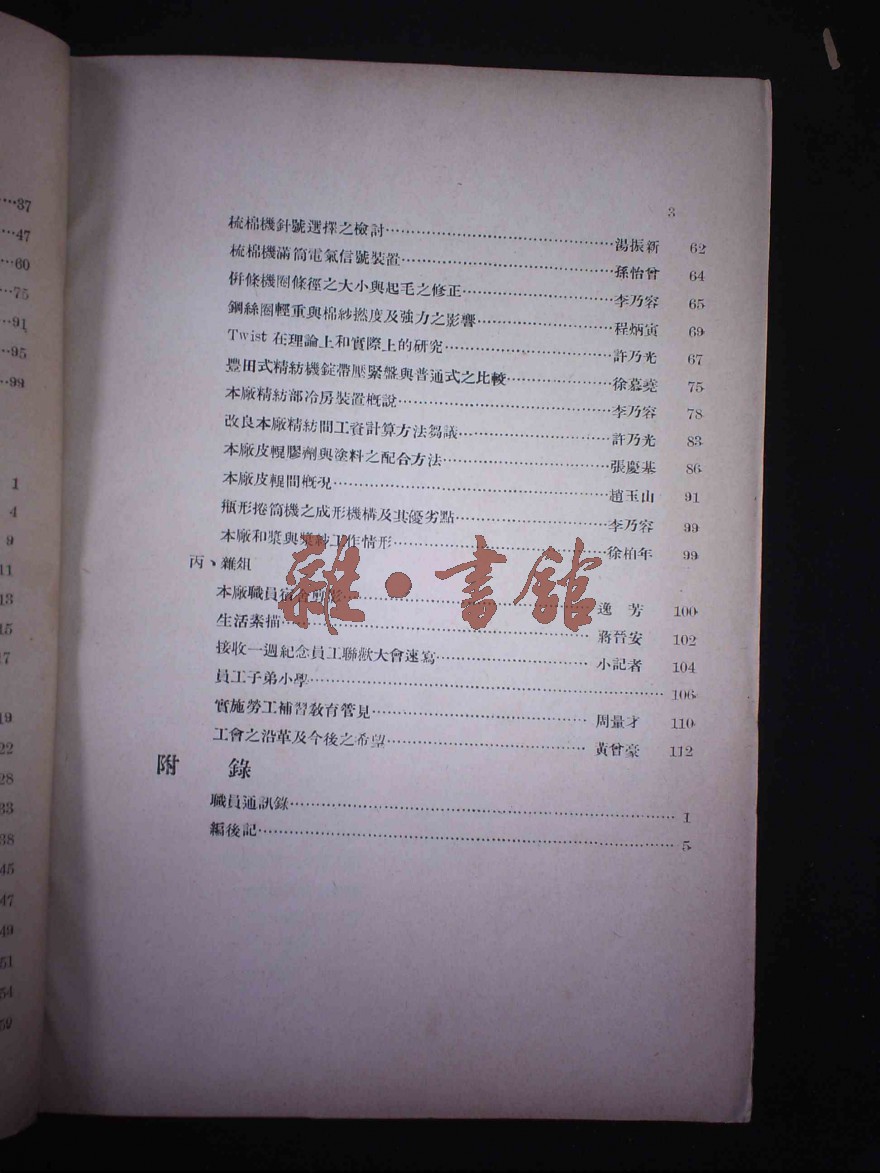 37
47
60
75
91
95
99
1
4
9
11
13
15
17
19
22
28
33
38
45
47
49
51
54
59
3
梳棉機針號選擇之檢討……湯振新 62
梳棉機滿筒電氣信號裝置……孫怡曾 64
併條機圈條徑之大小與起毛之修正……李乃容 65
鋼絲圈輕重與棉紗撚度及強力之影響……程炳寅 69
Twist 在理論上和實際上的研究……許乃光 67
豐田式精紡機錠帶壓緊盤與普通式之比較……徐慕堯 75
本廠精紡部冷房裝置概說……李乃容 78
改良本廠精紡間工資計算方法芻議……許乃光 83
本廠皮輥膠劑與塗料之配合方法……張慶基 86
本廠皮輥間概況……趙玉山 91
瓶形捲筒機之成形機構及其優劣點……李乃容 99
本廠和漿與漿紗工作情形……徐柏年 99
丙、雜俎
本廠職員宿舍剪影……逸 芳 100
生活素描……蔣晉安 102
接收一週紀念員工聯歡大會速寫……小記者 104
員工子弟小學……106
實施勞工補習教育管見……周量才 110
工會之沿革及今後之希望……黃曾豪 112
附 錄
職員通訊錄……1
編後記……5
雜·書館